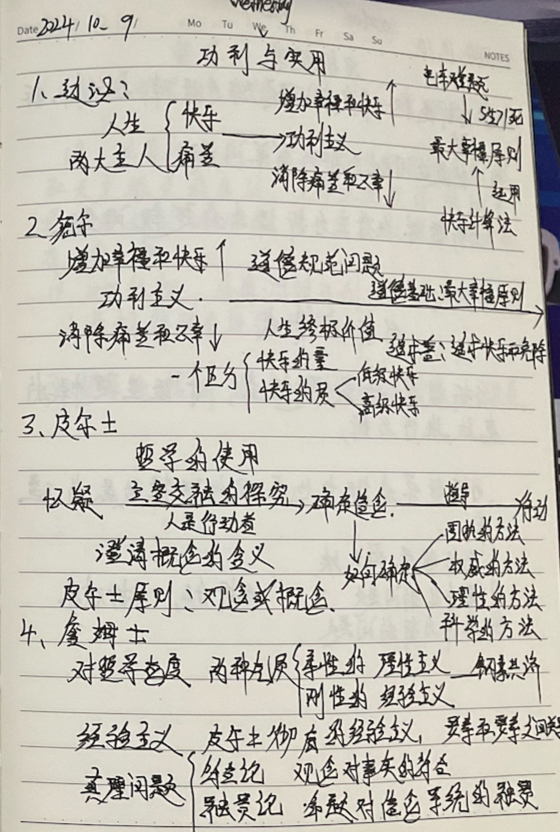 Wednesday
Date 2024/10.9/ Mo Tu We Th Fr Sa Su
NOTES
功利与实用
1、边沁：
人生两大主人 快乐 痛苦 → 功利主义
增加幸福和快乐↑
消除痛苦和不幸↓
电车难题
↓ 5生1死
最大幸福原则
↑ 运用
快乐计算法
2、密尔
增加幸福和快乐↑ 道德规范问题
功利主义. 道德基础：最大幸福原则
消除痛苦和不幸↓ 人生终极价值
追求善：追求快乐和免除
一个区分 快乐的量
快乐的质 低级快乐
高级快乐
3、皮尔士
哲学的使用
怀疑 主客交融的探究→确定信念. 指导 行动
人是行动者
澄清概念的含义
如何确定
固执的方法
权威的方法
理性的方法
科学的方法
皮尔士原则：观念或概念.
4、詹姆士
对哲学态度 两种气质 柔性的 理性主义
刚性的 经验主义
经验主义 皮尔士彻底的经验主义，
真理问题 符合论 观念对事实的符合
融贯论 命题对信念系统的融贯